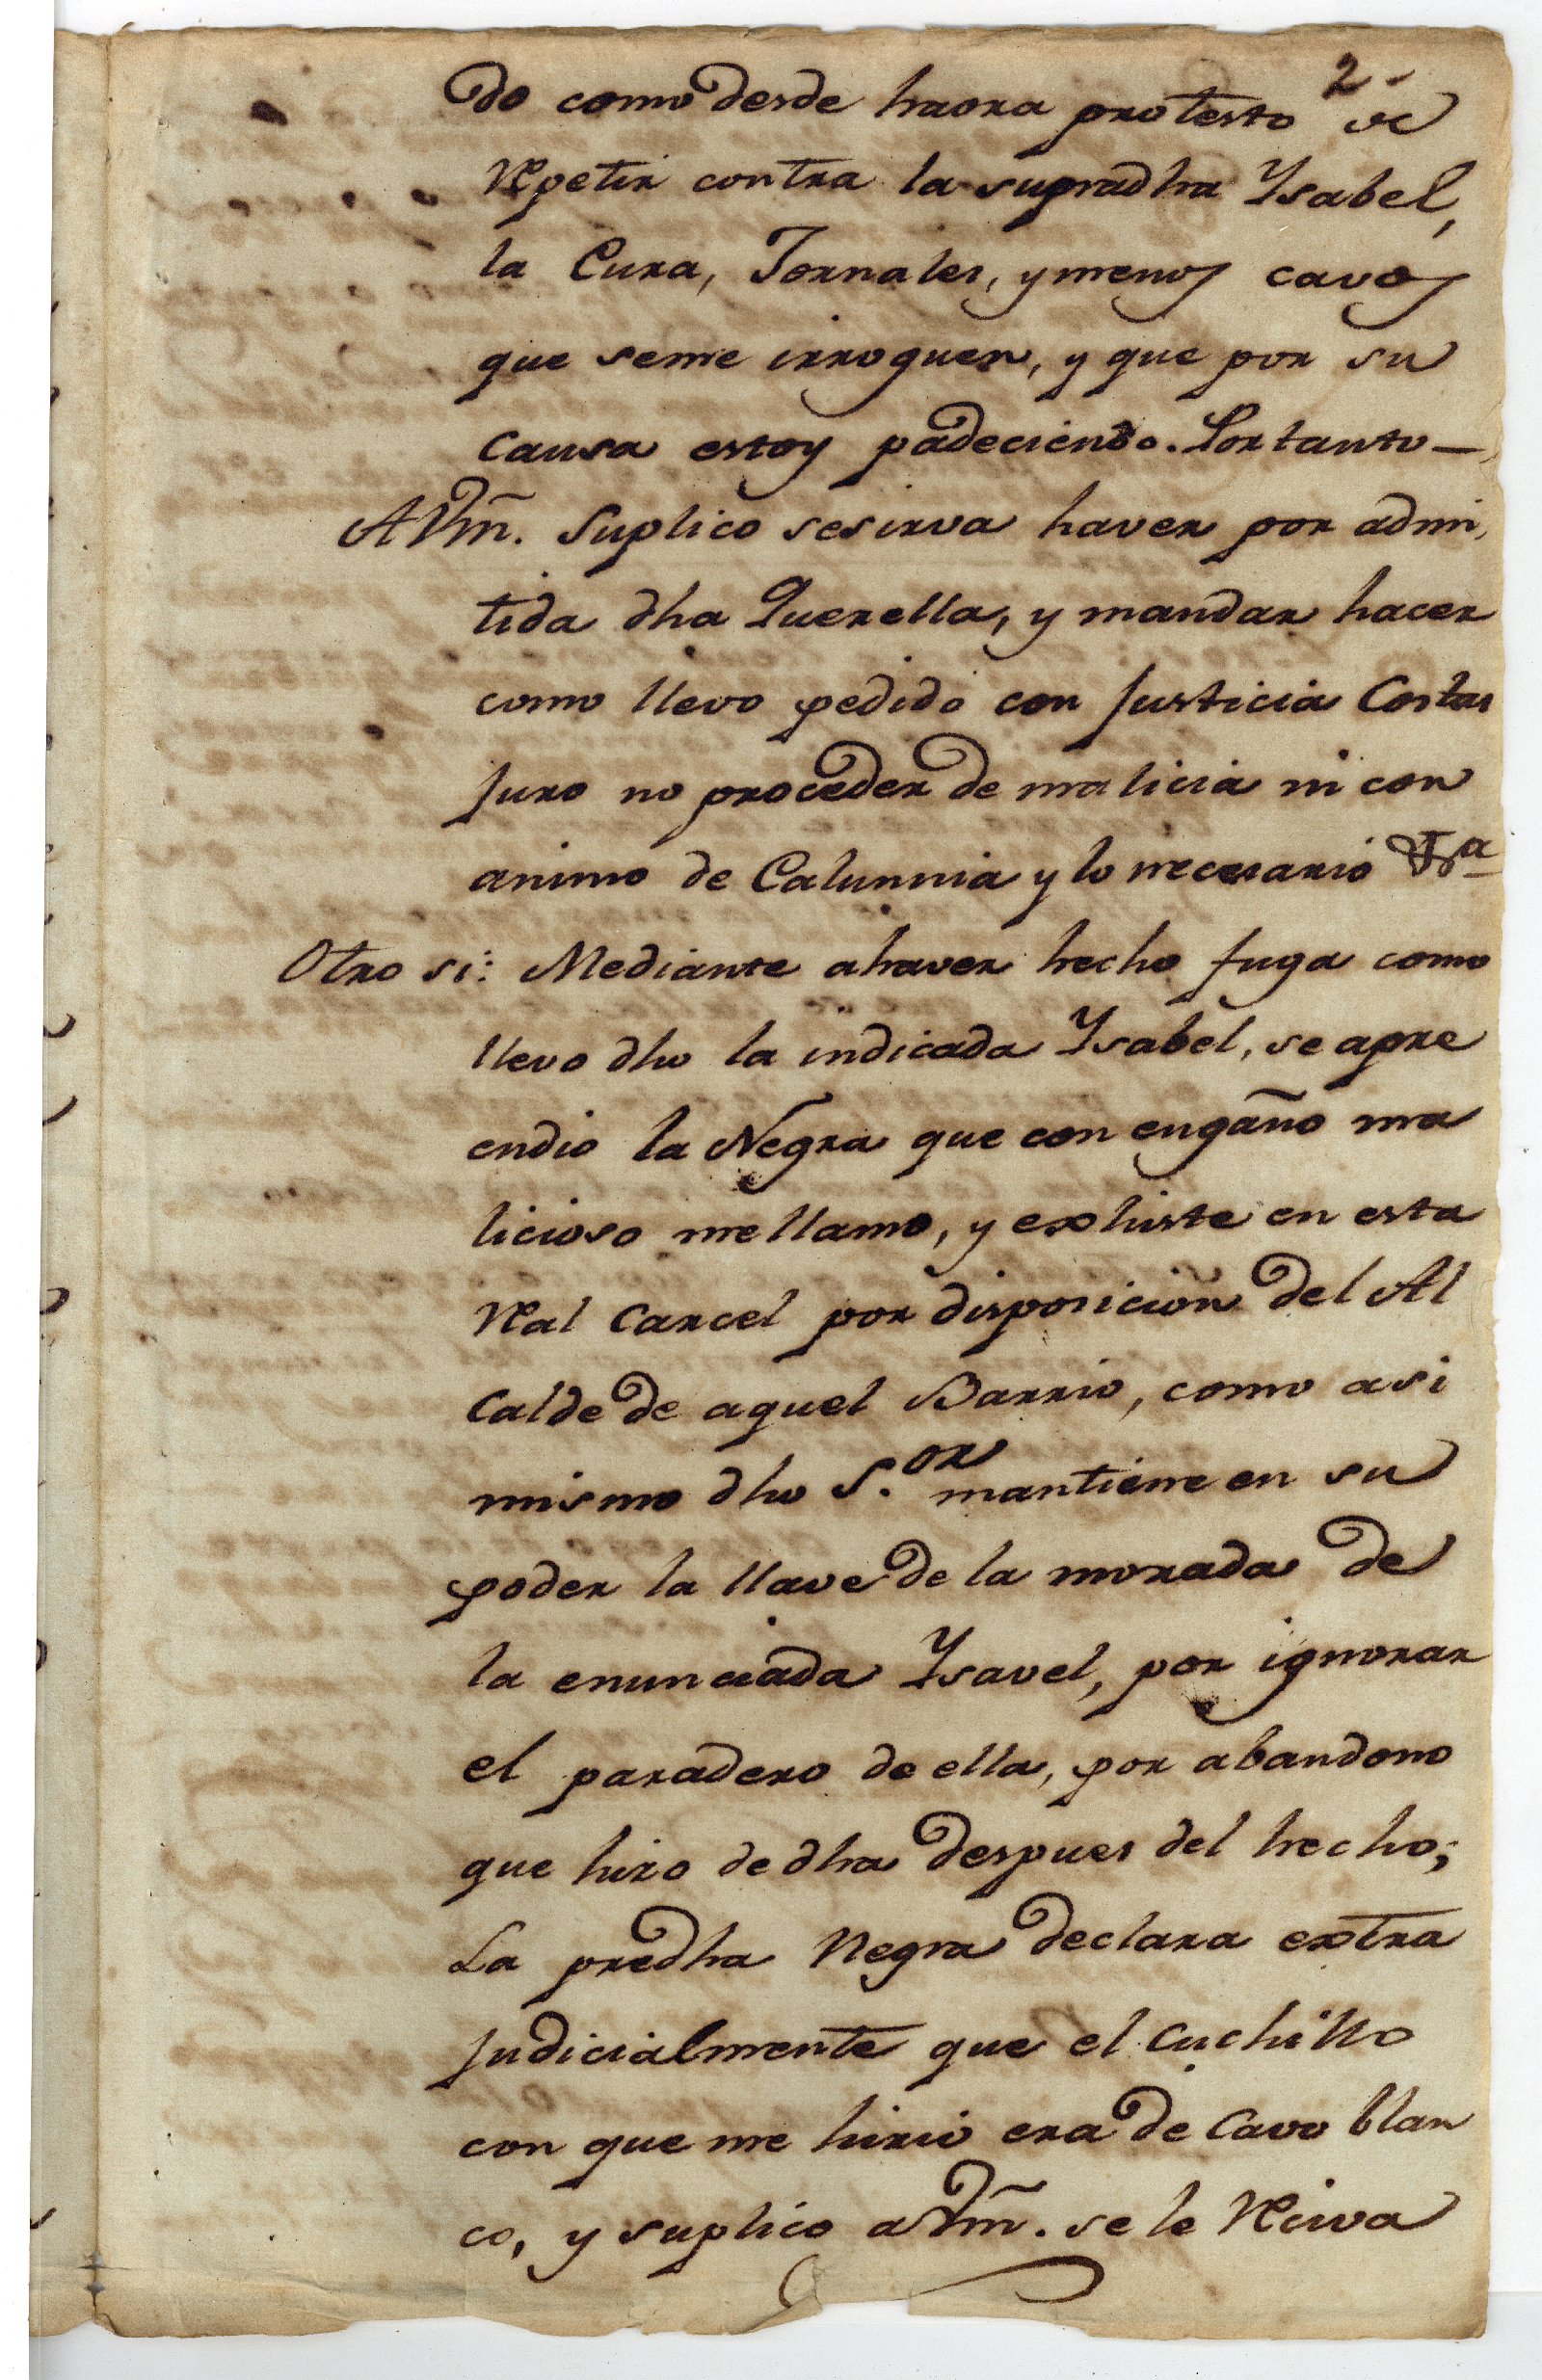 2
do como desde haora protesto de
Repetir contra la supradha Ysabel,
la Cura, Jornales, y menos cavos
que seme irroguen, y que por su
causa estoy padeciendo. Por tanto —
A Vm̃. Suplico sesirva haver por admi,
tida dha Querella, y mandar hacer
como llevo pedido con Justicia Costas
Juro no proceder de malicia ni con
animo de Calunnia y lo necesario
Otro si: Mediante a haver hecho fuga como
llevo dho la indicada Ysabel, se apre
endio la Negra que con engaño ma
licioso mellamo, y exhiste en esta
Ral Carcel por disposicion del Al
Calde de aquel Barrio, como asi
mismo dho S.or mantiene en su
poder la llave de la morada de
la enunciada Ysavel, por ignorar
el paradero de ella, por abandono
que hizo de dha despues del hecho;
La predha Negra declara extra
Judicialmente que el Cuchillo
con que me hirio era de Cavo blan
co, y suplico a Vm̃. se le Reciva